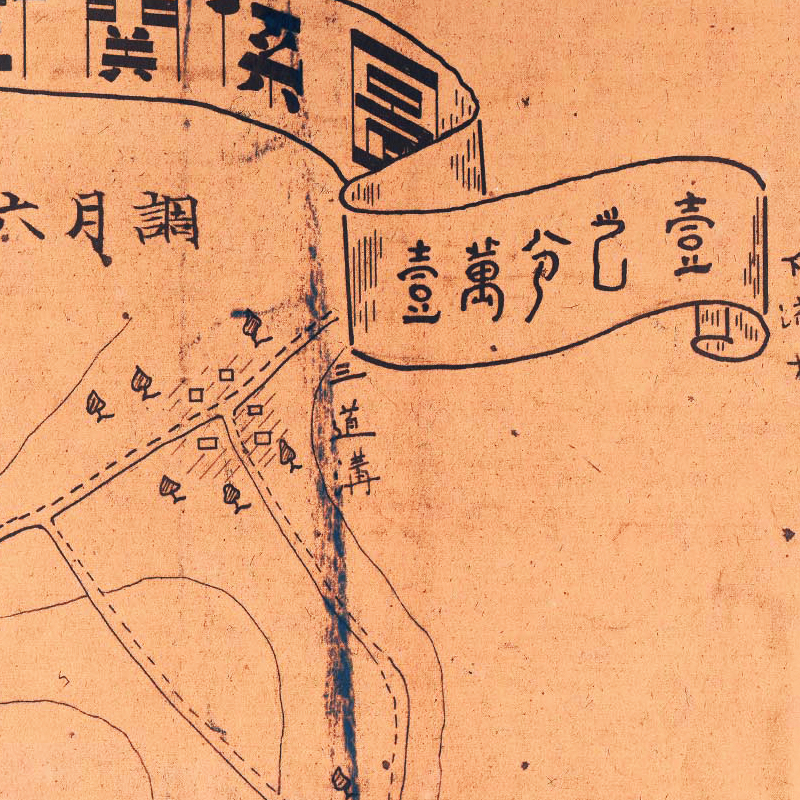 關係圖
六月調
壹萬分之壹
三道溝